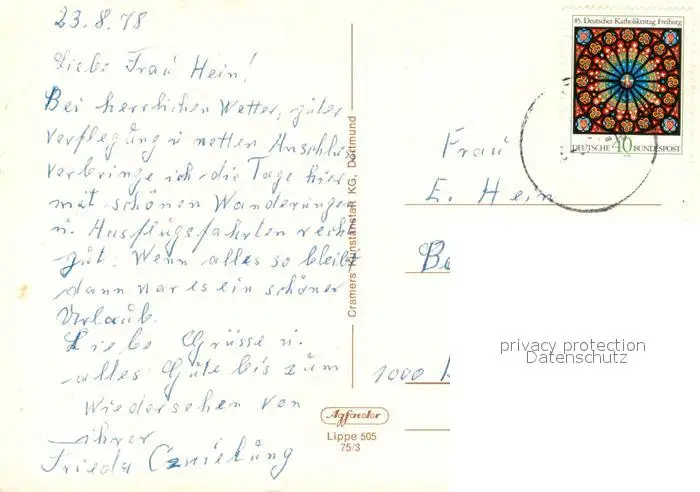 23.8.78
Liebe Frau Hein!
Bei herrlichen Wetter, gutes
Verflegung u netten Anschluß
verbringe ich die Tage hier
mit schönen Wanderungen
u. Ausflügsfahrten recht
gut. Wenn alles so bleibt
dann war es ein schöner
Urlaub.
Liebe Grüsse u.
alles Gute bis zum
Wiedersehen von
ihrer
Frieda
Cramers Kunstanstalt KG, Dortmund
85. Deutscher Katholikentag Freiburg
DEUTSCHE 40 BUNDESPOST
Frau
E. Hein
1000
privacy protection
Datenschutz
Agfacolor
Lippe 505
75/3